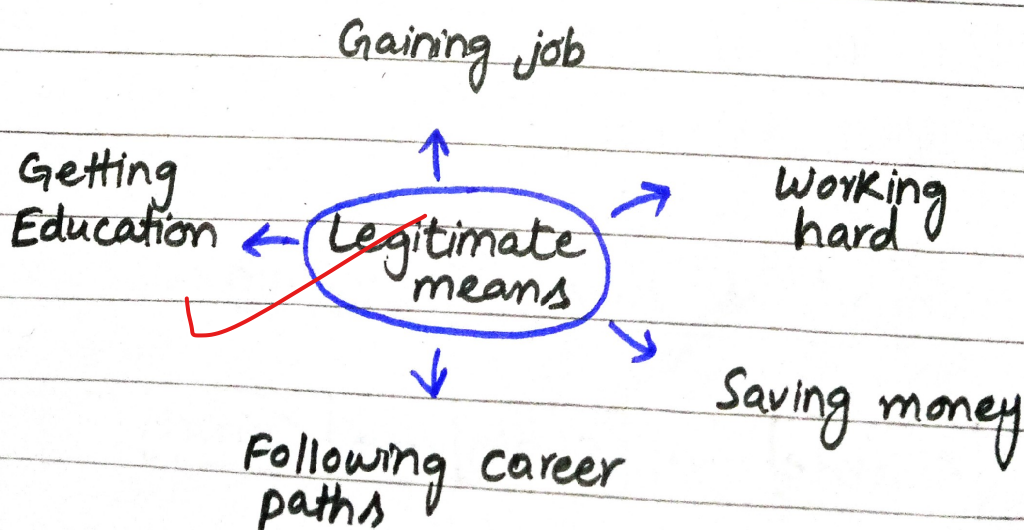 Gaining job
Getting
Education
Legitimate
means
Working
hard
Saving money
Following career
paths